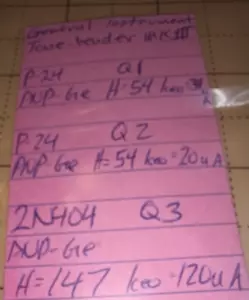 General Instrument
Tone bender MKIII
P-24 Q1
PNP-Ge H=54 Iceo=
P-24 Q2
PNP Ge H=54 Iceo=20uA
2N404 Q3
PNP-Ge
H=147 Iceo=120uA